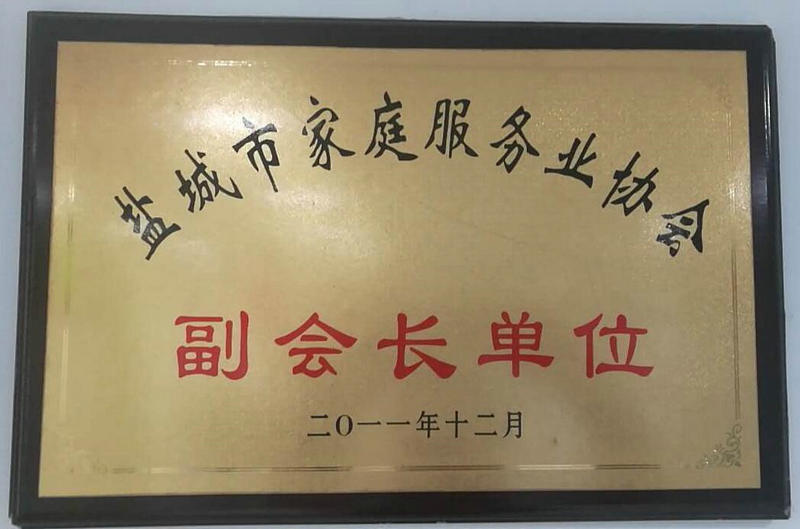 盐城市家庭服务业协会
副会长单位
二〇一一年十二月